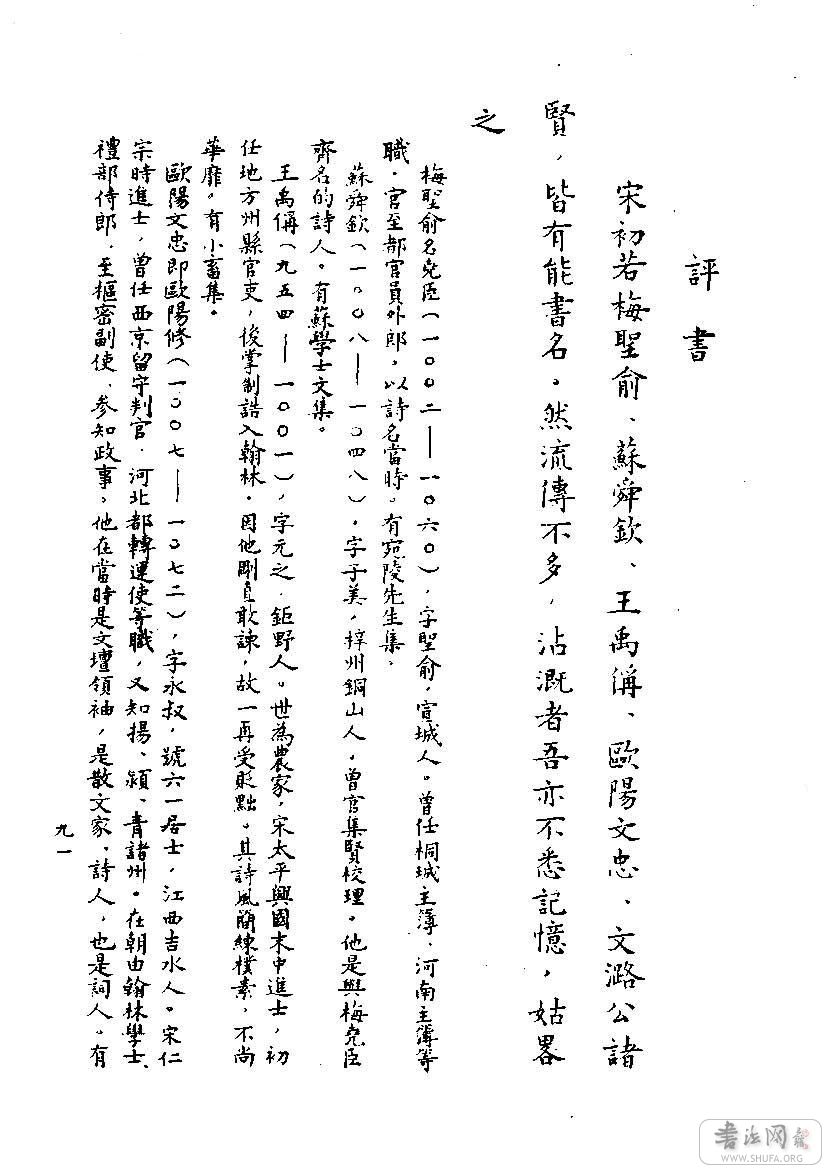 評書
宋初若梅聖俞、蘇舜欽、王禹偁、歐陽文忠、文潞公諸
賢，皆有能書名。然流傳不多，沾溉者吾亦不悉記憶，姑畧
之
梅聖俞名堯臣（一〇〇二——一〇六〇），字聖俞，宣城人。曾任桐城主簿、河南主簿等
職，官至都官員外郎，以詩名當時。有宛陵先生集。
蘇舜欽（一〇〇八——一〇四八），字子美，梓州銅山人。曾官集賢校理。他是與梅堯臣
齊名的詩人。有蘇學士文集。
王禹偁（九五四——一〇〇一），字元之，鉅野人。世為農家，宋太平興國末中進士，初
任地方州縣官吏，後掌制誥入翰林。因他剛直敢諫，故一再受貶黜。其詩風簡練樸素，不尚
華靡。有小畜集。
歐陽文忠即歐陽修（一〇〇七——一〇七二），字永叔，號六一居士，江西吉水人。宋仁
宗時進士，曾任西京留守判官、河北都轉運使等職，又知揚、潁、青諸州。在朝由翰林學士、
禮部侍郎，至樞密副使、參知政事。他在當時是文壇領袖，是散文家、詩人，也是詞人。有
九一
書法网
WWW.SHUFA.ORG